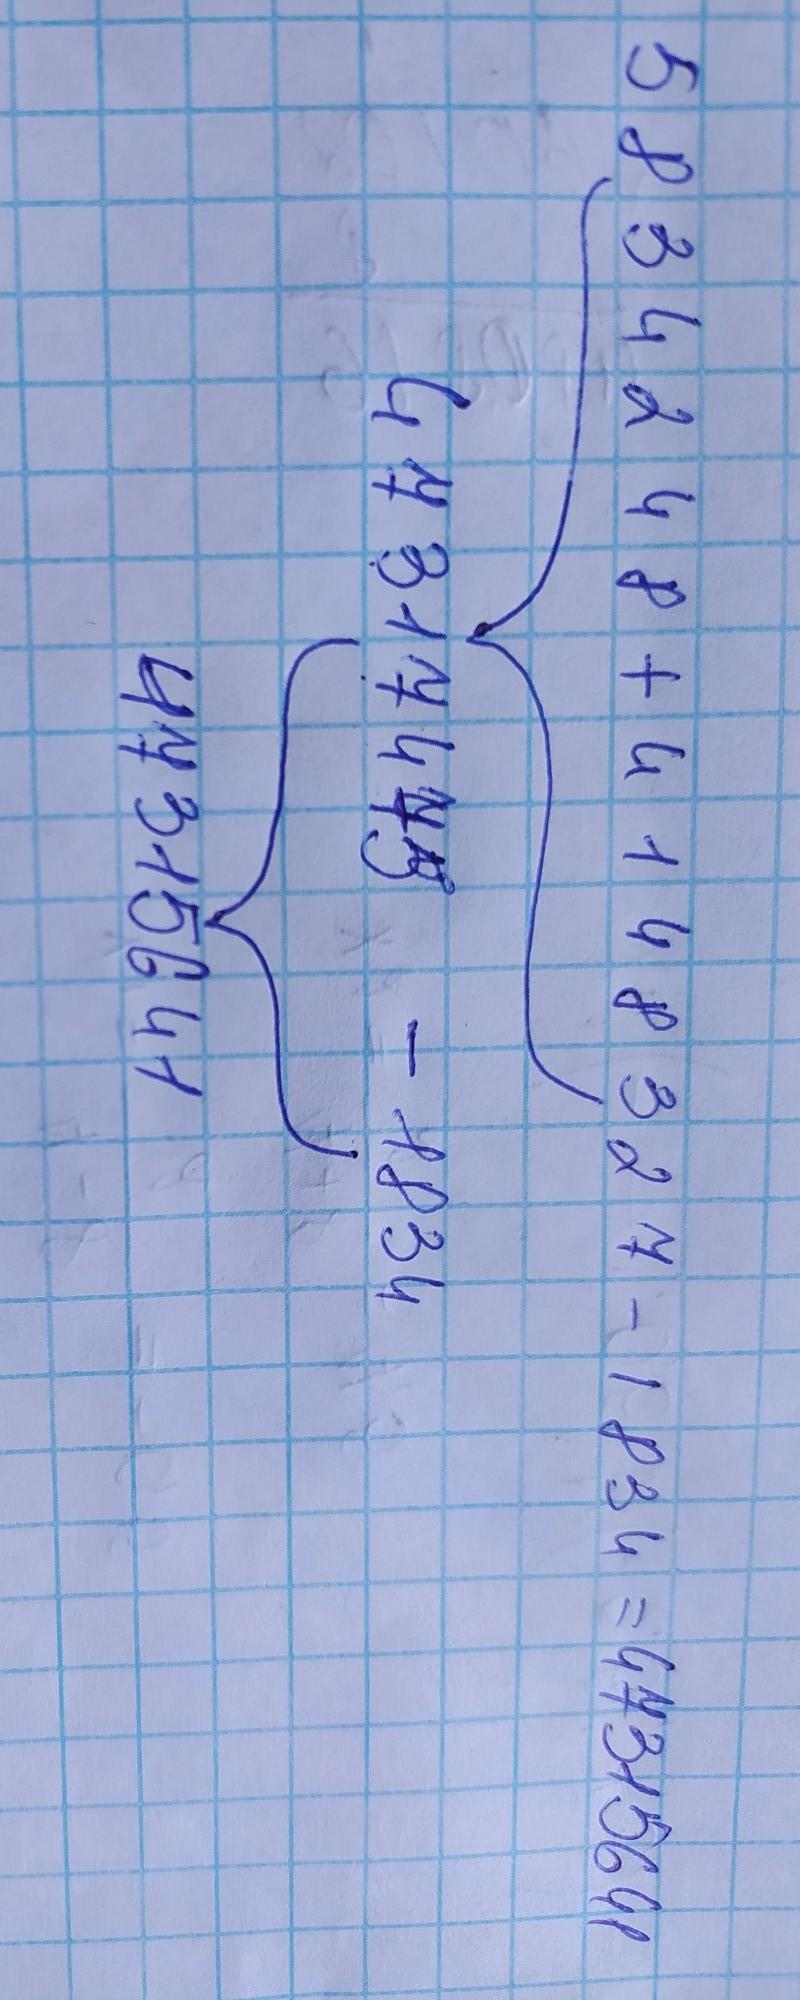 5834248+4148327-1834=47315641
47317475 - 1834
47315641